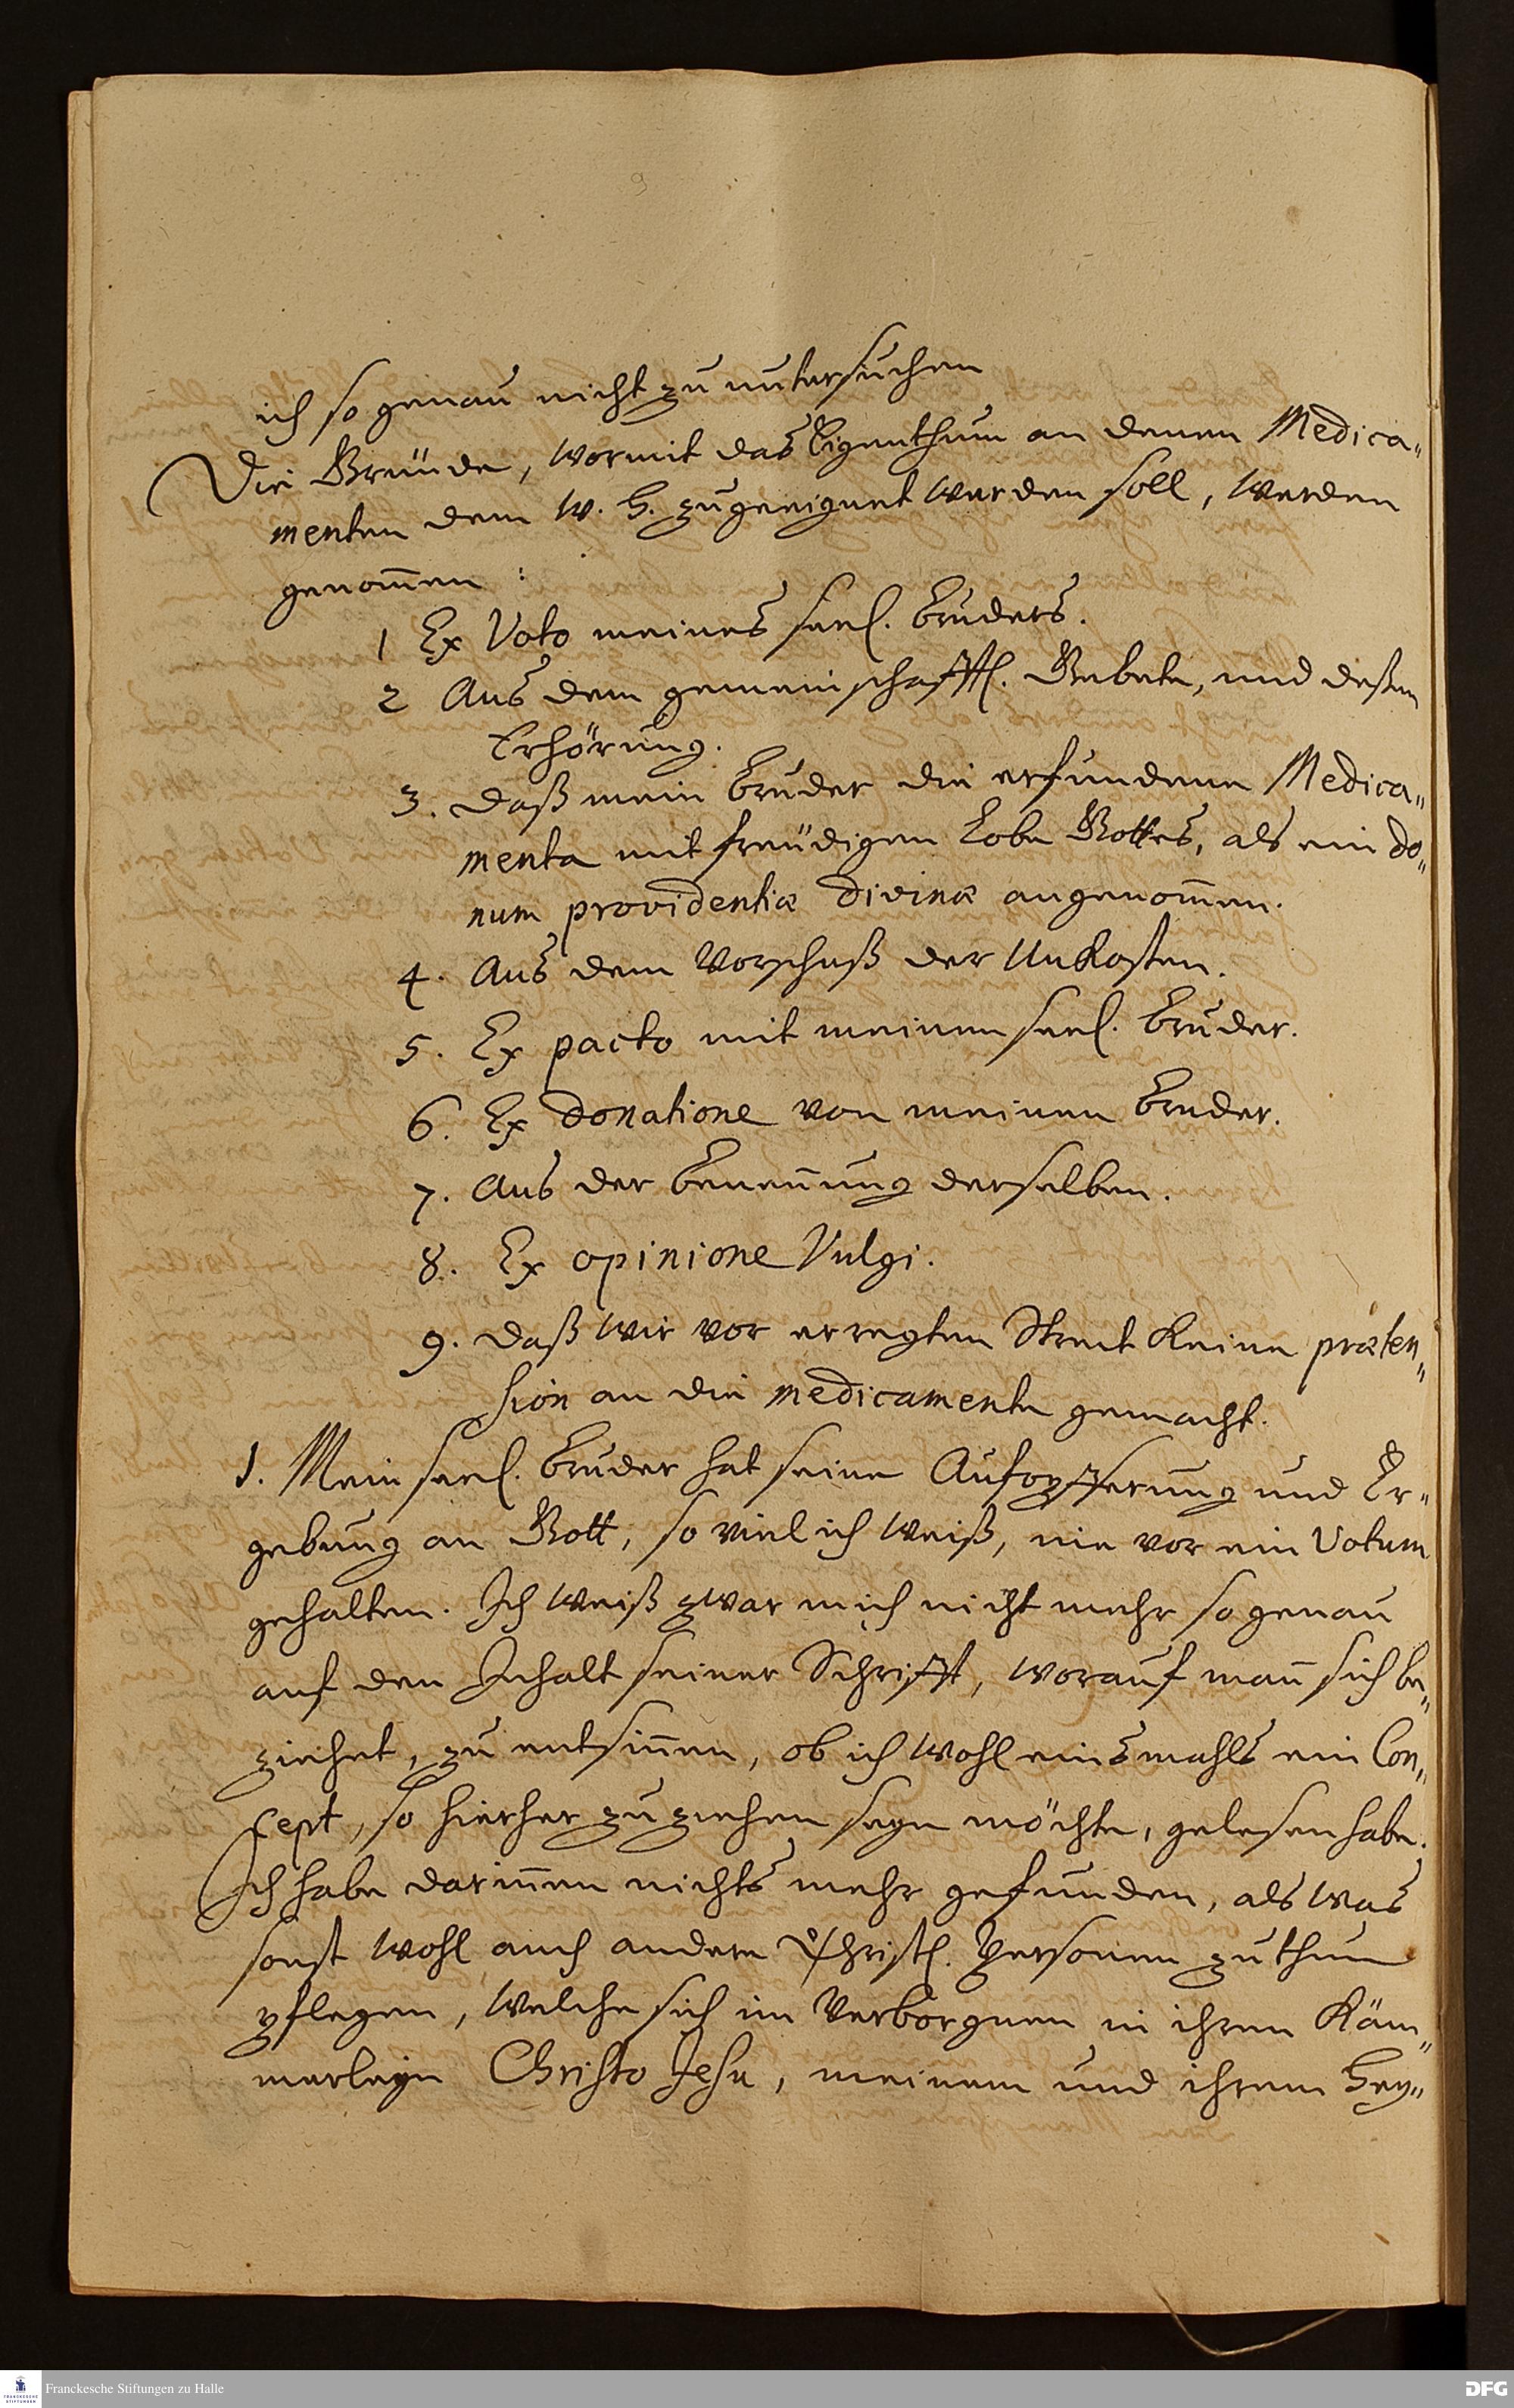 ich so genau nicht zu untersuchen
Die Gründe, wormit das Eigenthum an denen Medica-
menten dem W. H. zugeeignet werden soll, werden
genom̄en :
1 Ex Voto meines seel. Bruders.
2 Aus dem gemeinschafftl. Gebete, und deßen
Erhörung.
3. Daß mein Bruder die erfundene Medica-
menta mit freudigem Lobe Gottes, als ein do-
num providentiæ divinæ angenom̄en.
4. Aus dem Vorschuß der Unkosten.
5. Ex pacto mit meinem seel. Bruder.
6. Ex donatione von meinem Bruder.
7. Aus der Benen̄ung derselben.
8. Ex opinione Vulgi.
9. Daß wir vor erregten Streit keine præten-
sion an die medicamente gemacht.
1. Mein seel. Bruder hat seine Aufopfferung und Er-
gebung an Gott, so viel ich weiß, nie vor ein Votum
gehalten. Ich weiß zwar mich nicht mehr so genau
auf den Inhalt seiner Schrifft, worauf man̄ sich be-
ziehet, zu entsin̄en, ob ich wohl einsmahls ein Con-
cept, so hierher zu ziehen seyn möchte, gelesen habe.
Ich habe darin̄en nichts mehr gefunden, als was
sonst wohl auch andere Christl. Personen zu thun
pflegen, welche sich im Verborgnen in ihren Käm-
merleyn Christo Jesu, meinem und ihrem Hey-
Franckesche Stiftungen zu Halle
DFG